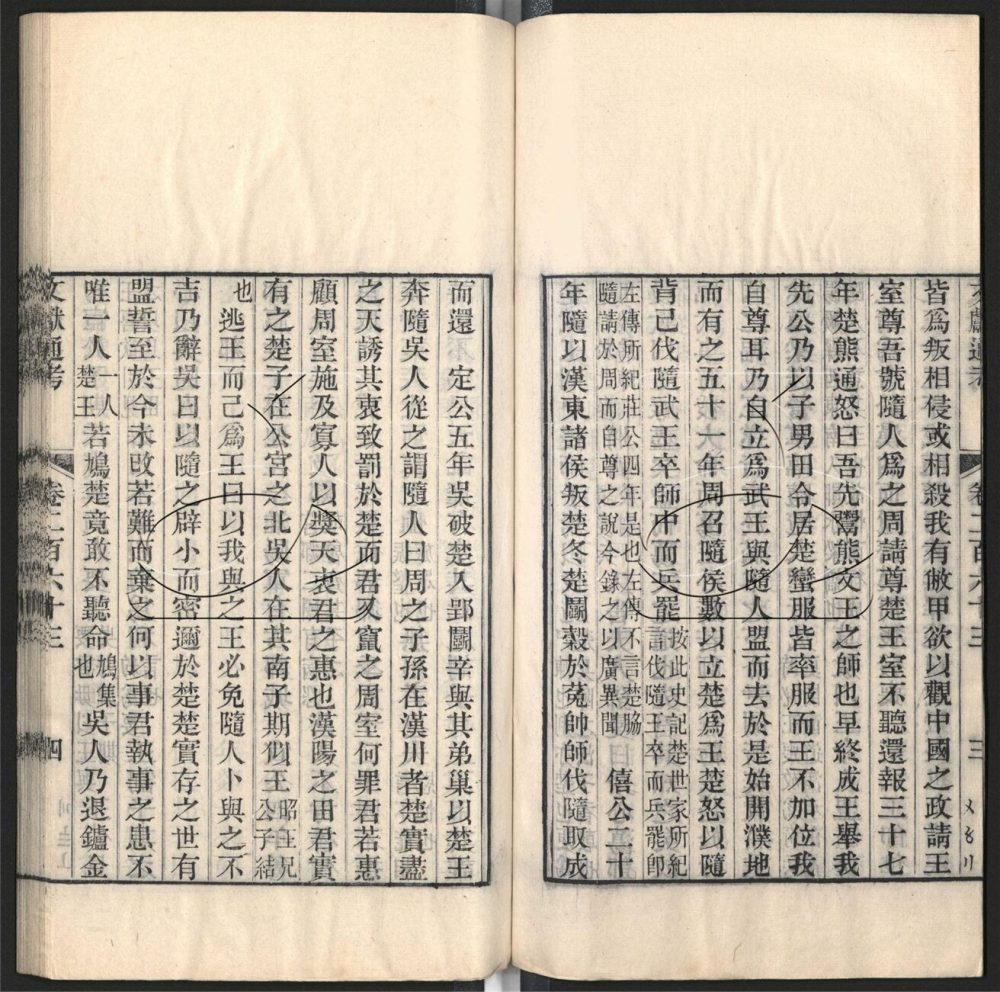 文獻通考 卷二百六十三 三
皆爲叛相侵或相殺我有敝甲欲以觀中國之政請王
室尊吾號隨人爲之周請尊楚王室不聽還報三十七
年楚熊通怒曰吾先鬻熊文王之師也早終成王舉我
先公乃以子男田令居楚蠻服皆率服而王不加位我
自尊耳乃自立爲武王與隨人盟而去於是始開濮地
而有之五十一年周召隨侯數以立楚爲王楚怒以隨
背己伐隨武王卒師中而兵罷按此史記楚世家所紀言伐隨王卒而兵罷卽
左傳所紀莊公四年是也左傳不言楚脇隨請於周而自尊之說今錄之以廣異聞 僖公二十
年隨以漢東諸侯叛楚冬楚鬭穀於菟帥師伐隨取成
而還 定公五年吳破楚入郢鬭辛與其弟巢以楚王
奔隨吳人從之謂隨人曰周之子孫在漢川者楚實盡
之天誘其衷致罰於楚而君又竄之周室何罪君若惠
顧周室施及寡人以奬天衷君之惠也漢陽之田君實
有之楚子在公宮之北吳人在其南子期似王昭王兄公子結
也逃王而己爲王曰以我與之王必免隨人卜與之不
吉乃辭吳曰以隨之辟小而密邇於楚楚實存之世有
盟誓至於今未改若難而棄之何以事君執事之患不
唯一人一人楚王若鳩楚竟敢不聽命鳩集也吳人乃退鑪金
文獻通考 卷二百六十三 四